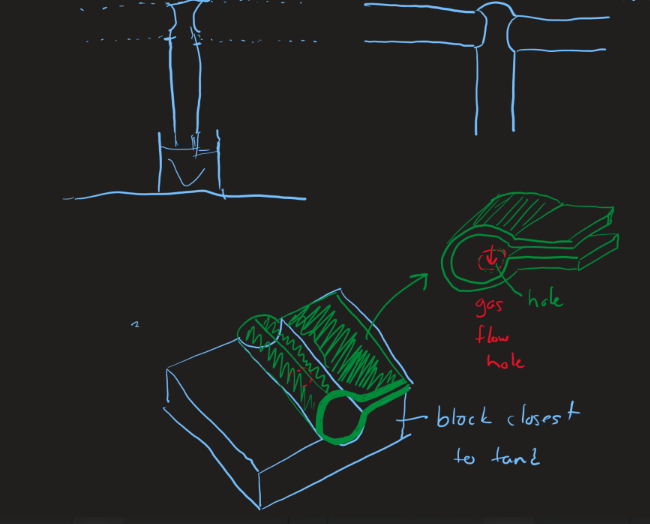 hole
gas
flow
hole
block closest
to